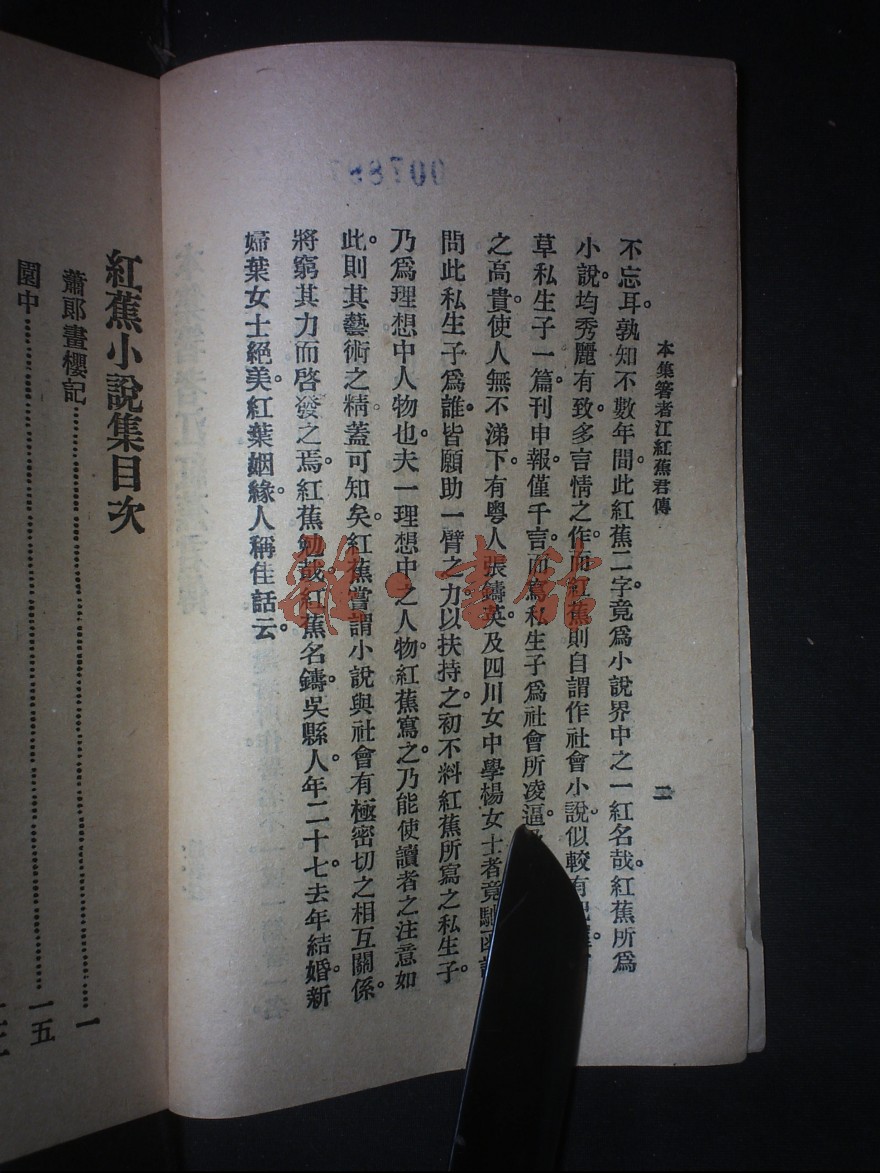 本集箸者江紅蕉君傳
二
不忘耳。孰知不數年間。此紅蕉二字。竟爲小說界中之一紅名哉。紅蕉所爲
小說。均秀麗有致。多言情之作。而紅蕉則自謂作社會小說。似較有
草私生子一篇。刊申報。僅千言。而寫私生子爲社會所凌逼。
之高貴。使人無不涕下。有粵人張鑄英。及四川女中學楊女士者。竟馳函
問此私生子爲誰。皆願助一臂之力。以扶持之。初不料紅蕉所寫之私生子。
乃爲理想中人物也。夫一理想中之人物。紅蕉寫之。乃能使讀者之注意如
此。則其藝術之精。蓋可知矣。紅蕉嘗謂小說與社會有極密切之相互關係。
將窮其力而啓發之焉。紅蕉勉哉。紅蕉名鑄。吳縣人。年二十七。去年結婚。新
婦葉女士絕美。紅葉姻緣。人稱佳話云。
紅蕉小說集目次
蕭郞畫櫻記⋯⋯一
園中⋯⋯一五
雜·書館